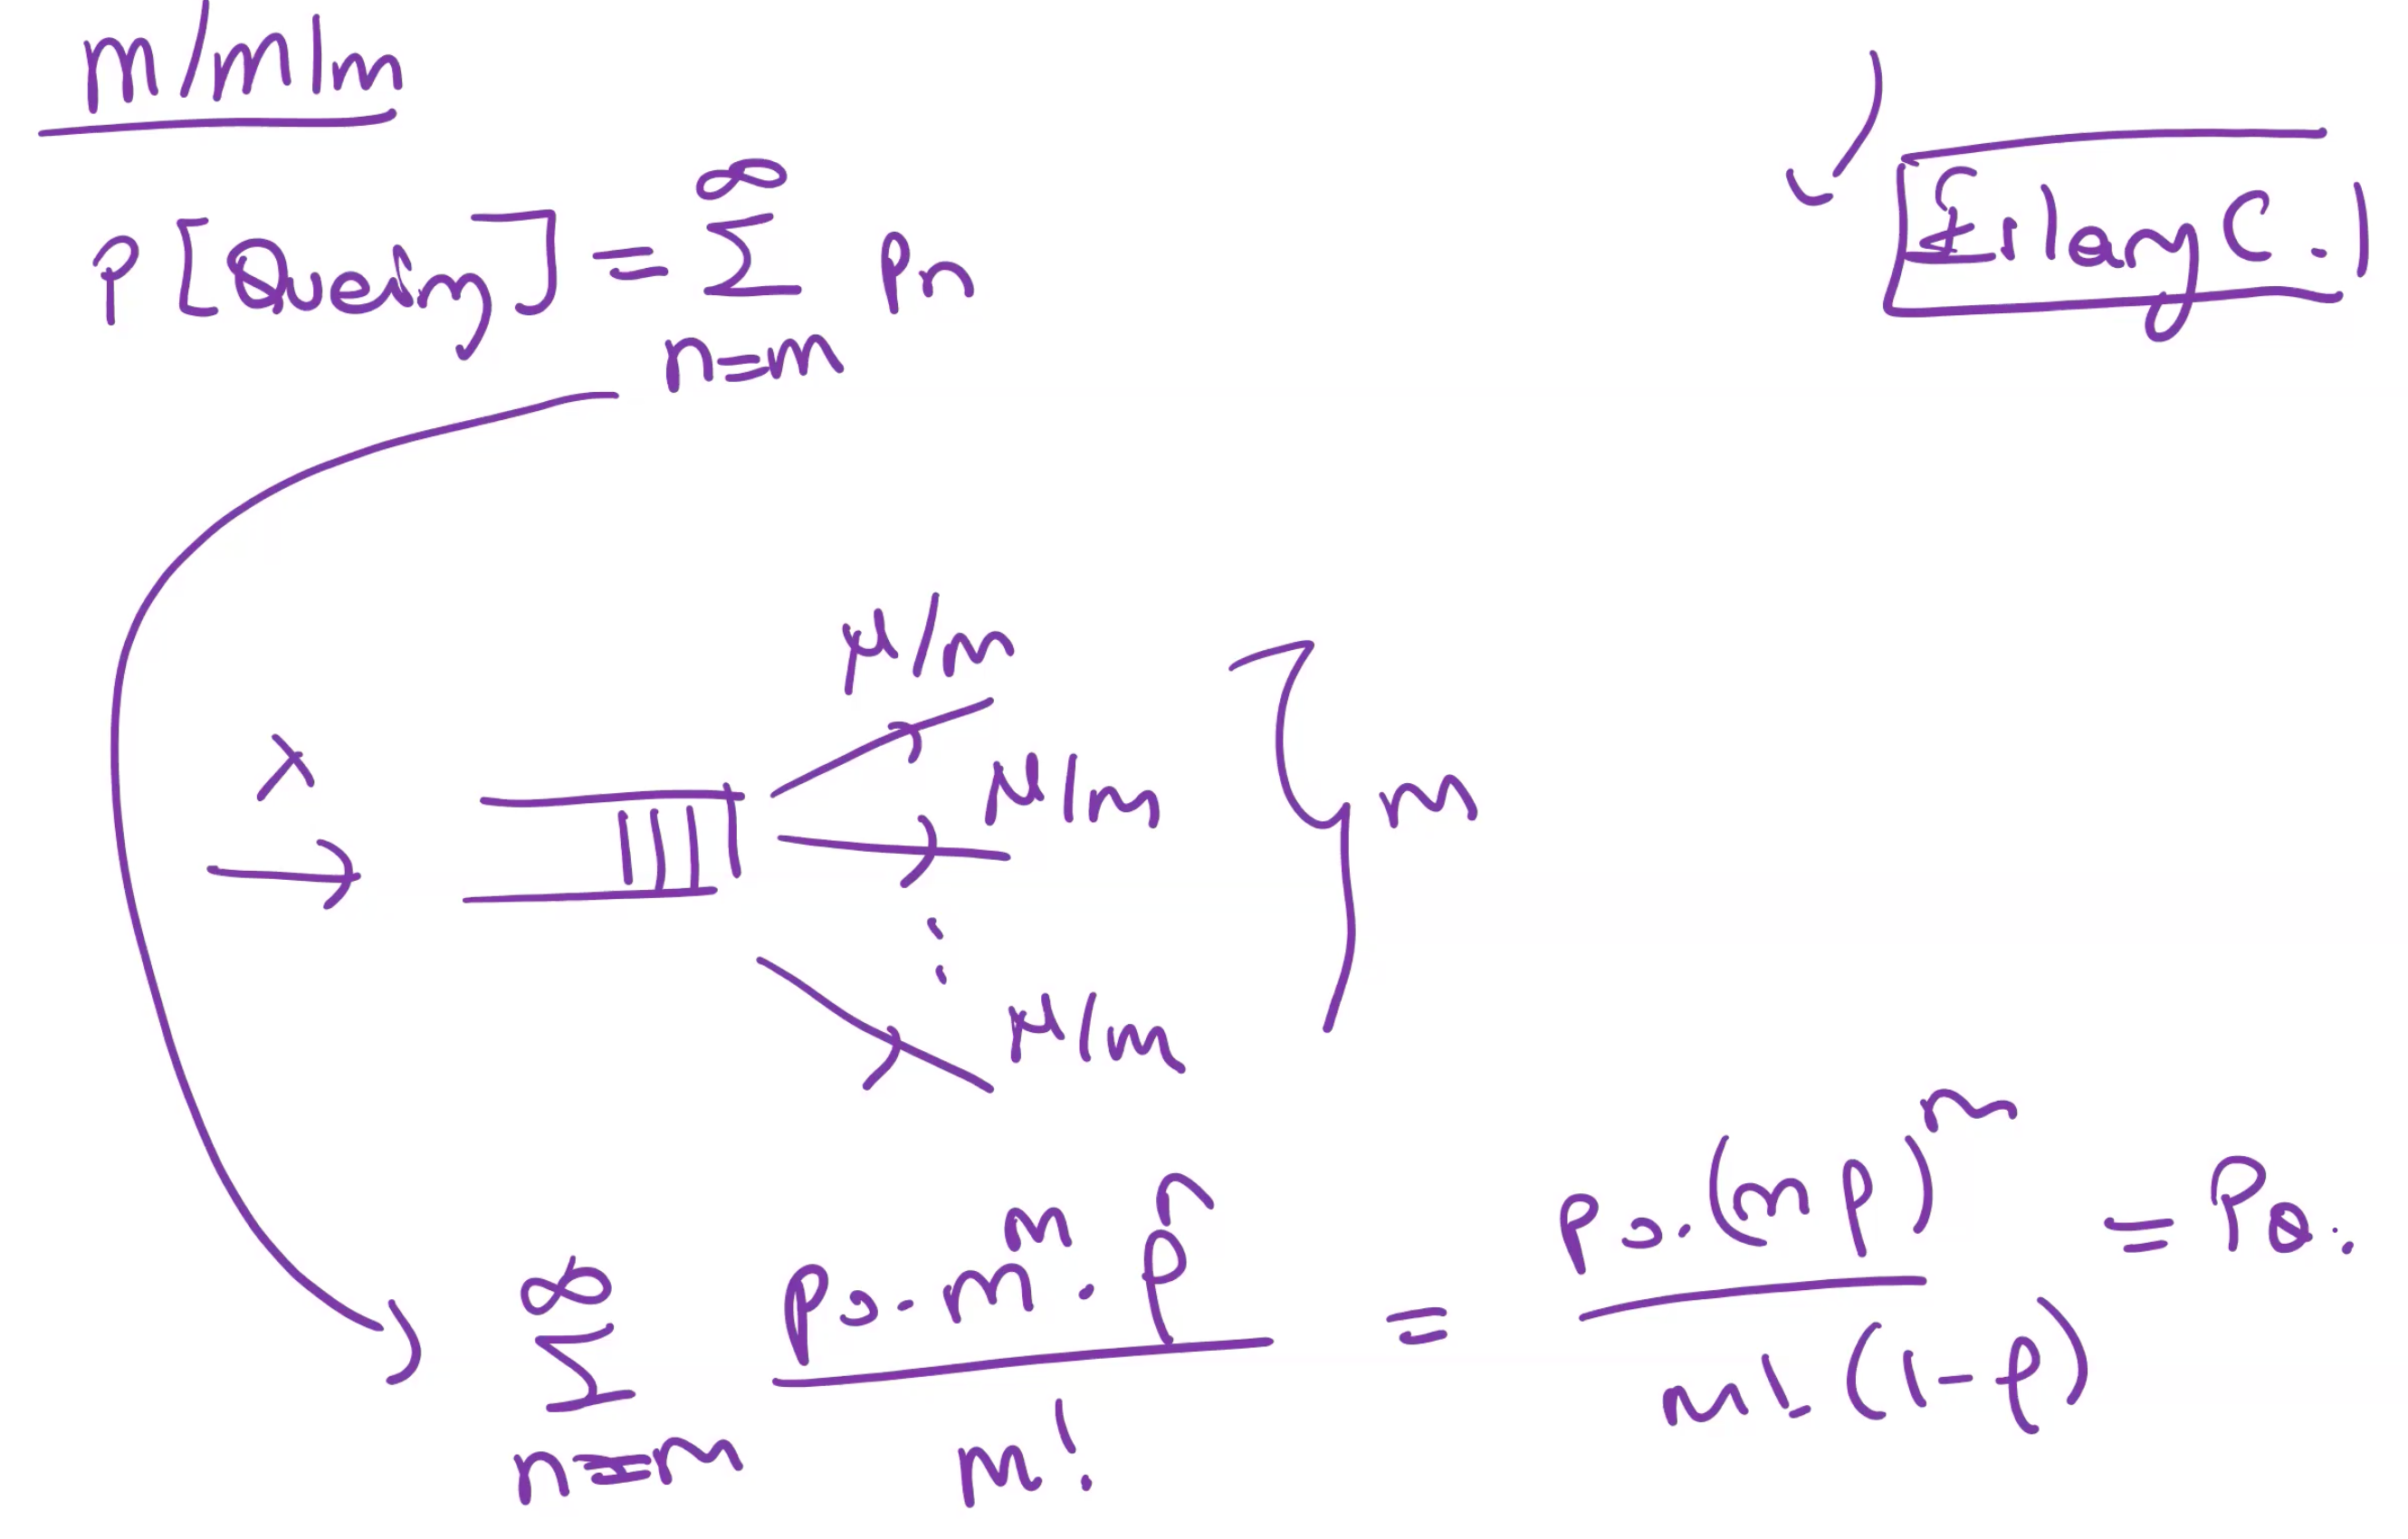 M/M/m
P[Queuing] = ∞ Σ n=m pn
Erlang C.
μ/m
μ/m
λ
m
μ/m
∞ Σ n=m p0 · m^m · ρ^n / m! = p0 · (mρ)^m / m! (1-ρ) = PQ.